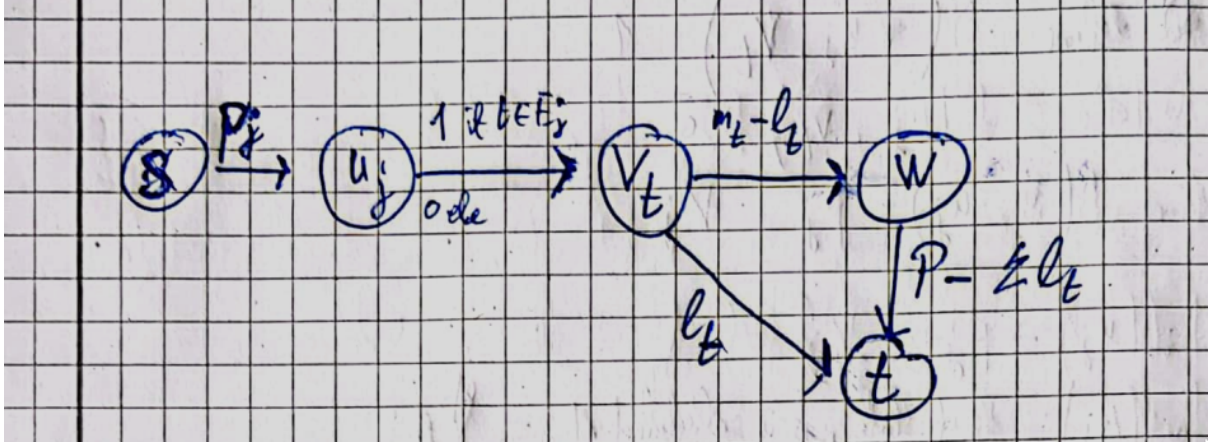 S
P_j
u_j
1 if t ∈ E_j
0 else
V_t
m_t - l_t
W
l_t
P - Σ l_t
t